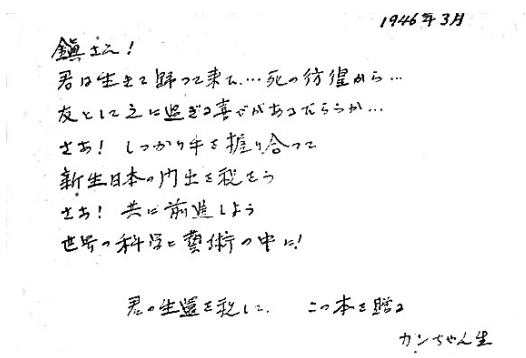 1946年3月
鎭さん!
君は生きて帰って来た…死の彷徨から…
友として之に過ぎる喜びがあるだらうか…
さあ! しっかり手を握り合って
新生日本の門出を祝をう
さあ! 共に前進しよう
世界の科学と藝術の中に!
君の生還を祝して、 この本を贈る
カンちゃん生